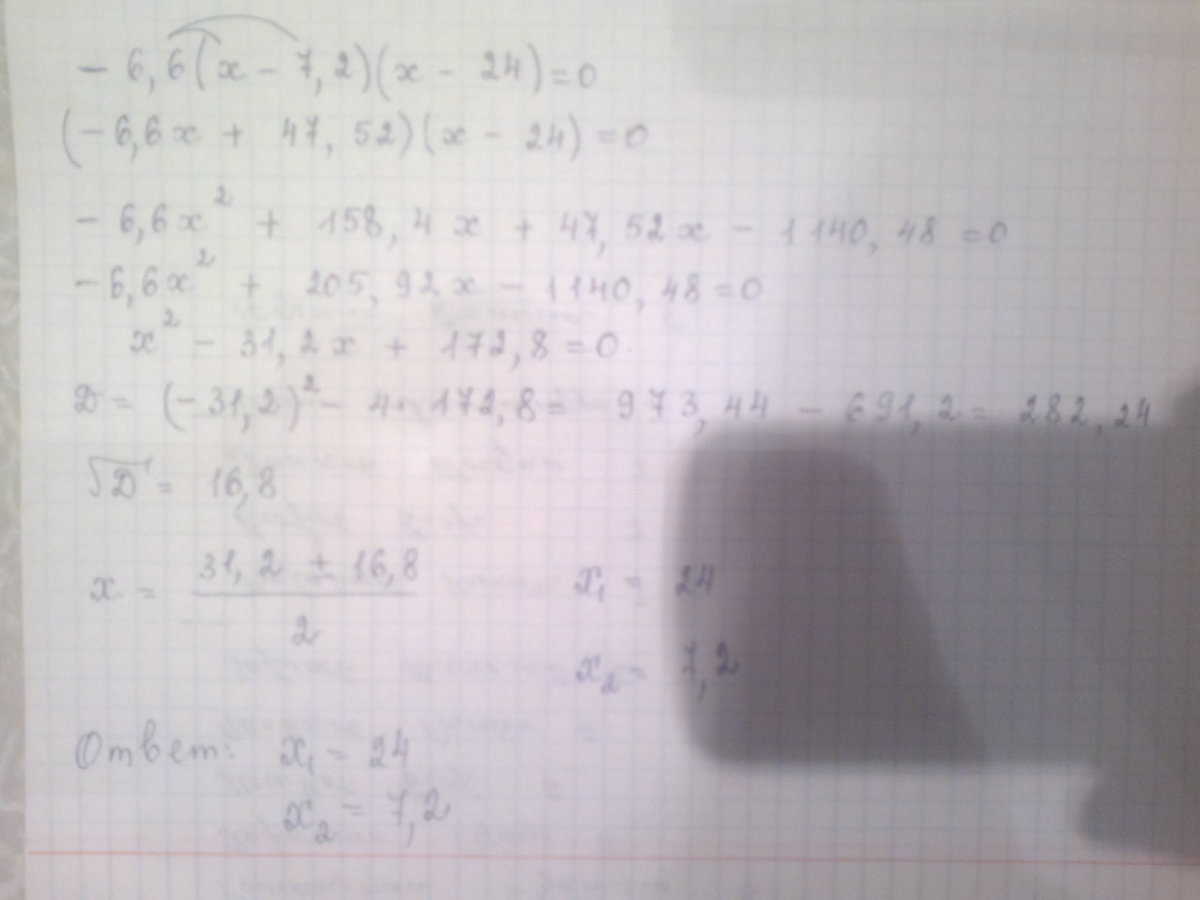 - 6,6(x - 7,2)(x - 24)=0
(-6,6x + 47,52)(x - 24)=0
- 6,6x² + 158,4x + 47,52x - 1140,48 =0
-6,6x² + 205,92x - 1140,48=0
x² - 31,2x + 172,8=0
D= (-31,2)² - 4· 172,8= 973,44 - 691,2= 282,24
√D = 16,8
x = (31,2 ± 16,8)/2 x₁ = 24
x₂ = 7,2
Ответ: x₁ = 24
x₂ = 7,2